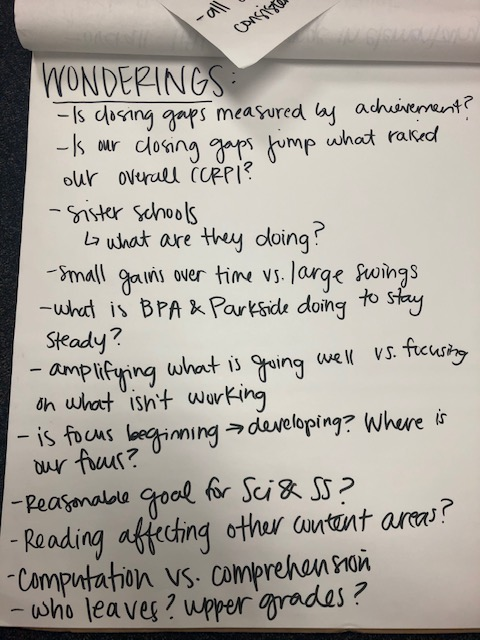 -all
consisten
WONDERINGS:
-Is closing gaps measured by achievement?
-Is our closing gaps jump what raised
our overall CCRPI?
-Sister schools
↳ what are they doing?
-small gains over time vs. large swings
-what is BPA & Parkside doing to stay
steady?
- amplifying what is going well vs. focusing
on what isn't working
- is focus beginning → developing? Where is
our focus?
-Reasonable goal for Sci & SS?
-Reading affecting other content areas?
-Computation vs. comprehension
- who leaves? upper grades?